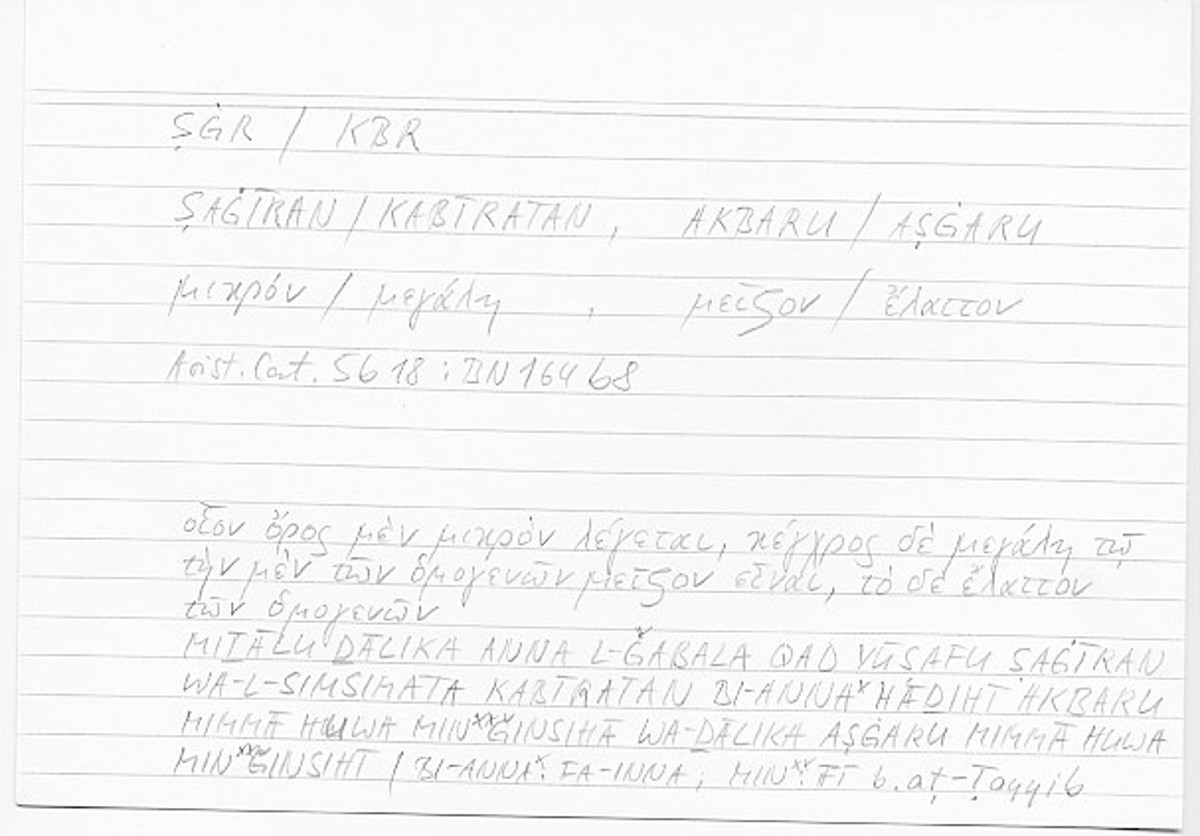 ṢĠR / KBR
ṢAĠĪRAN / KABĪRATAN, AKBARU / AṢĠARU
μικρόν / μεγάλη , μεῖζον / ἔλαττον
Arist. Cat. 5b18 : BN 164b8
οἷον ὄρος μὲν μικρὸν λέγεται, κέγχρος δὲ μεγάλη τῷ
τὴν μὲν τῶν ὁμογενῶν μεῖζον εἶναι, τὸ δὲ ἔλαττον
τῶν ὁμογενῶν
MIṮĀLU ḎĀLIKA ANNA L-ǦABALA QAD YŪṢAFU ṢAĠĪRAN
WA-L-SIMSIMATA KABĪRATAN BI-ANNAˣ HĀḎIHĪ AKBARU
MIMMĀ HUWA MINˣˣǦINSIHĀ WA-ḎĀLIKA AṢĠARU MIMMĀ HUWA
MINˣˣǦINSIHĪ / BI-ANNAˣ: FA-INNA; MINˣˣ: FĪ b. aṭ-Ṭayyib